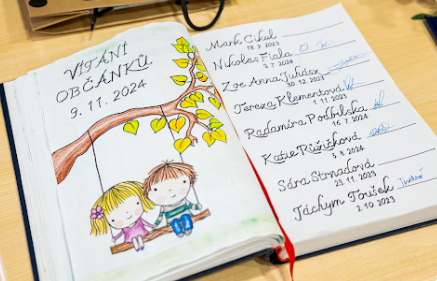 VÍTÁNÍ
OBČÁNKŮ
9. 11. 2024
Mark Cikul
Nikolas Fiala
3. 7. 2024
Zoe Anna Juhász
30. 12. 2023
Tereza Klementová
1. 11. 2023
Radamira Podbilska
16. 7. 2024
Katie Růžičková
5. 8. 2024
Sára Strnadová
23. 11. 2023
Jáchym Toušek
2. 10. 2023